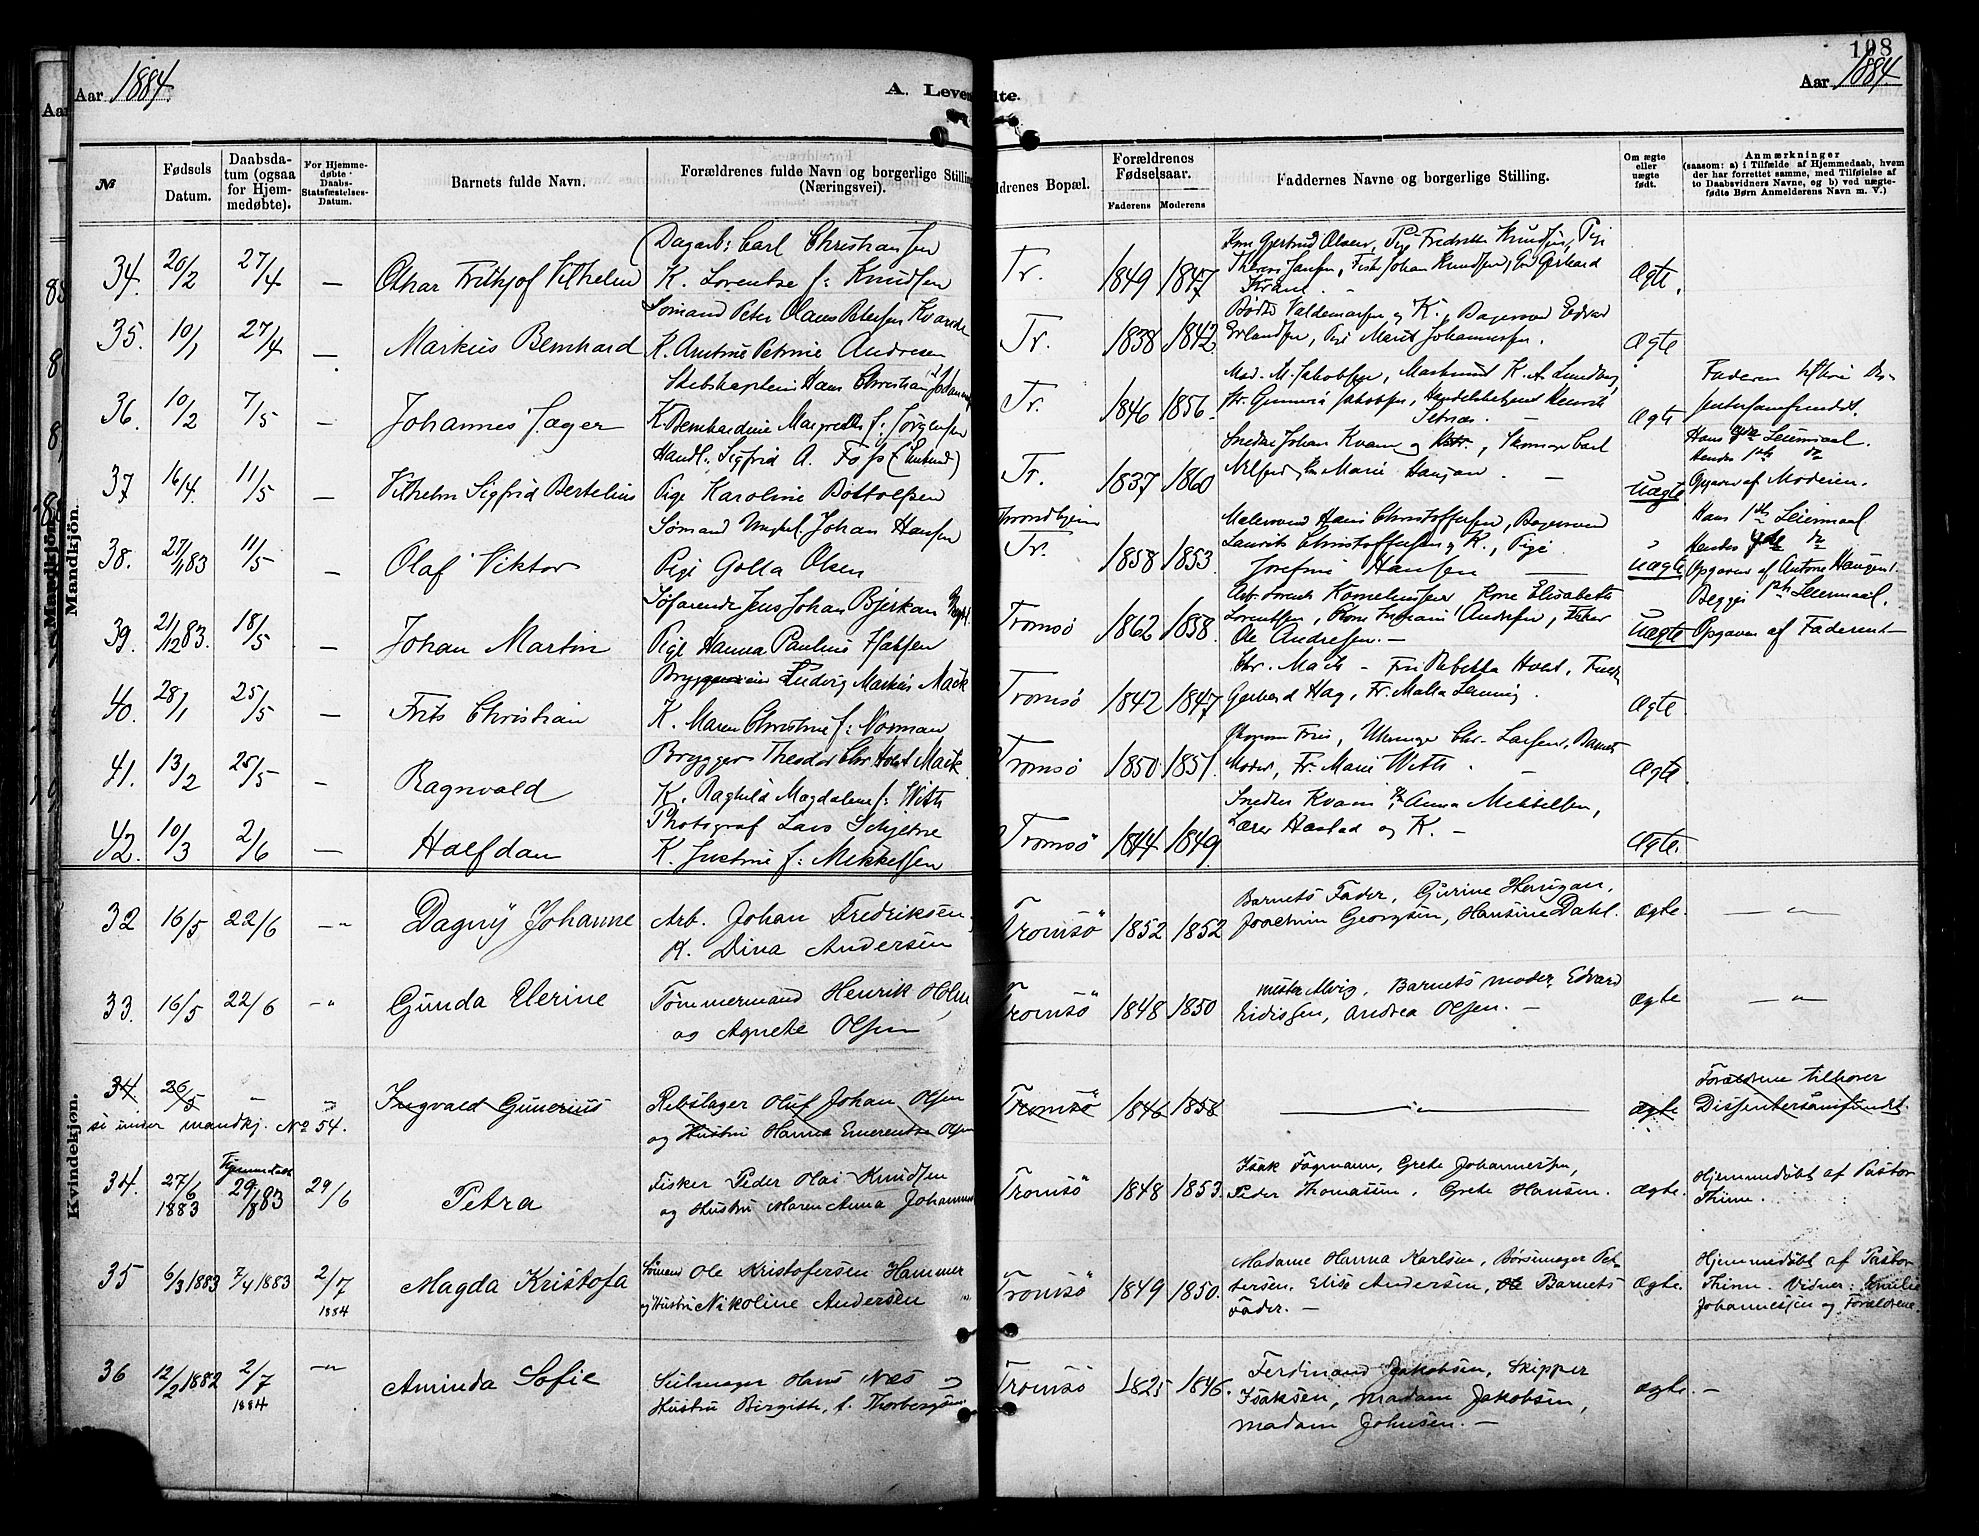 Aar 1884.
A. Leven
dte.
108
Aar 1884.
№
Fødsels Datum.
Daabsda-
tum (ogsaa
for Hjem-
medøbte).
For Hjemme-
døbte
Daabs-
Statsfæstelses-
Datum.
Barnets fulde Navn.
Forældrenes fulde Navn og borgerlige Stilling
(Næringsvei).
ldrenes Bopæl.
Forældrenes
Fødselsaar.
Faderens Moderens
Faddernes Navne og borgerlige Stilling.
Om ægte
eller
uægte
født.
Anmærkninger
(saasom: a) i Tilfælde af Hjemmedaab, hvem
der har forrettet samme, med Tilføielse af
to Daabsvidners Navne, og b) ved uægte-
fødte Børn Anmelderens Navn m. V.)
Mandkjön.
34. 20/2 27/4 — Othar Frithjof Vilhelm
Dagarb: Carl Christiansen
K. Lorentse f: Knudsen
Tr. 1849 1847
Gertrud Olsen, Pige Fredrikke Knudsen, Pige
Jansen, Fisk. Johan Knudsen, Gerhard
Ægte.
35. 10/1 27/4 — Markus Bernhard
Sømand Peter Olaus Petersen
K. Petrine Andresen
Tr. 1838 1842
Valdemarsen og K., Edvard
Erlandsen, Pige Marit Johannessen.
Ægte
36. 10/2 7/5 — Johannes Jæger
Hans Christian
K. Bernhardine Margrethe f. Jørgensen
Tr. 1846 1856
Mad. M. Jakobsen, K. A. Lundberg,
Jakobsen, Henrik
Ægte
Faderen
37 16/4. 11/5 — Vilhelm Sigfrid Bertelius
Handl: Sigfrid A. Foss
Pige Karoline Bottolfsen
Tr. 1837 1860
Snedker Johan Kvam og Carl
Marie Hansen. —
Uægte
Hans Leiermaal.
Hendes 1ste do
Opgaven af Moderen.
38. 27/11 83 11/5 — Olaf Viktor
Sømand Johan Hansen
Pige Golla Olsen
Throndhjem
Tr. 1858 1853
Malersvend Hans Christoffersen, Bagersvend
Laurits Christoffersen og K., Pige
Josefine Hansen —
uægte
Hans 1ste Leiermaal
Hendes do
Opgaven af Antone Haugen.
39. 21/12 83. 18/5 — Johan Martin
Søfarende Jens Johan Bjerkan
Pige Hanna Pauline
Tromsö 1862 1858.
Kornelius Kone Elisabeth
Lorentsen, Kone Andresen, Fisker
Ole Andresen. —
Uægte
Begges 1ste Leiermaal.
Opgaven af Faderen —
40. 28/1 25/5 — Frits Christian
Ludvig Markus Mack
K. Maren Christine f: Norman
Tromsö 1842 1847
Chr. Mack — Frk Rebekka Holst,
Gerhard Hag, Fr. Malla
Ægte.
41. 13/2 25/5 — Ragnvald
Brygger Theodor Chr Holst Mack
K. Raghild Magdalene f: Witth
Tromsö 1850 1851.
Friis, Chr. Larsen, Barnets
Moder, Fr. Marie Witth. —
Ægte.
42. 10/3 2/6 — Halfdan
Photograf Lars Schjelne
K. Justine f: Mikkelsen
Tromsö 1844 1849
Snedker Kvam Anna Mikkelsen,
Lærer Hastad og K. —
Ægte.
Kvindekjön.
32 16/5 22/6 –"– Dagny Johanne
Arb. Johan Fredriksen,
K. Dina Andersen
Tromsö 1852 1852
Barnets Fader, Gurine Hansen,
Joachim Georgsen, Hansine Dahl.
ægte. — " —
33. 16/5 22/6 –" Gunda Elerine
Tömmermand Henrik Holm
og Agnete Olsen
Tromsö 1848 1850
Alvig, Barnets moder, Edvard
Eidissen, Andrea Olsen. —
ægte — " —
34 26/5 – " Ingvald Gunerius
si under mandkj. No 54.
Rebslager Oluf Johan Olsen
og Hustru Hanna Emerentse Olsen
Tromsö 1846 1858 — " —
ægte
Forældrene tilhører
Dissentersamfundet.
34. 27/6 1883 Hjemmedøbt 29/8 83 29/6 Petra
Fisker Peder Olai Knudsen
og Hustru Maren Anna Johannes
Tromsö 1848 1853.
Isak Fagmann, Grete Johannessen,
Peder Thomassen, Grete Hansen.
Ægte.
Hjemmedöbt af Pastor
Thime.
35 6/3 1883 7/4 1883 2/7 1884 Magda Kristofa
Sömand Ole Kristofersen Hammer
og Hustru Nikoline Andersen
Tromsö 1849 1850.
Madame Hanna Karlsen, Börsemager Pet-
tersen, Elise Andersen, Barnets
Fader. —
Ægte.
Hjemmedöbt af Pastor
Thime. Vidner:
Johannessen og Forældrene.
36 12/2 1882 2/7 1884 –"– Aminda Sofie
Seilmager Hans Næs og
Hustru Birgitte, f. Thorbergsen
Tromsö 1825 1846.
Ferdinand Jakobsen, Skipper
Isaksen, Madam Jakobsen,
Madam Johnsen. —
ægte. —